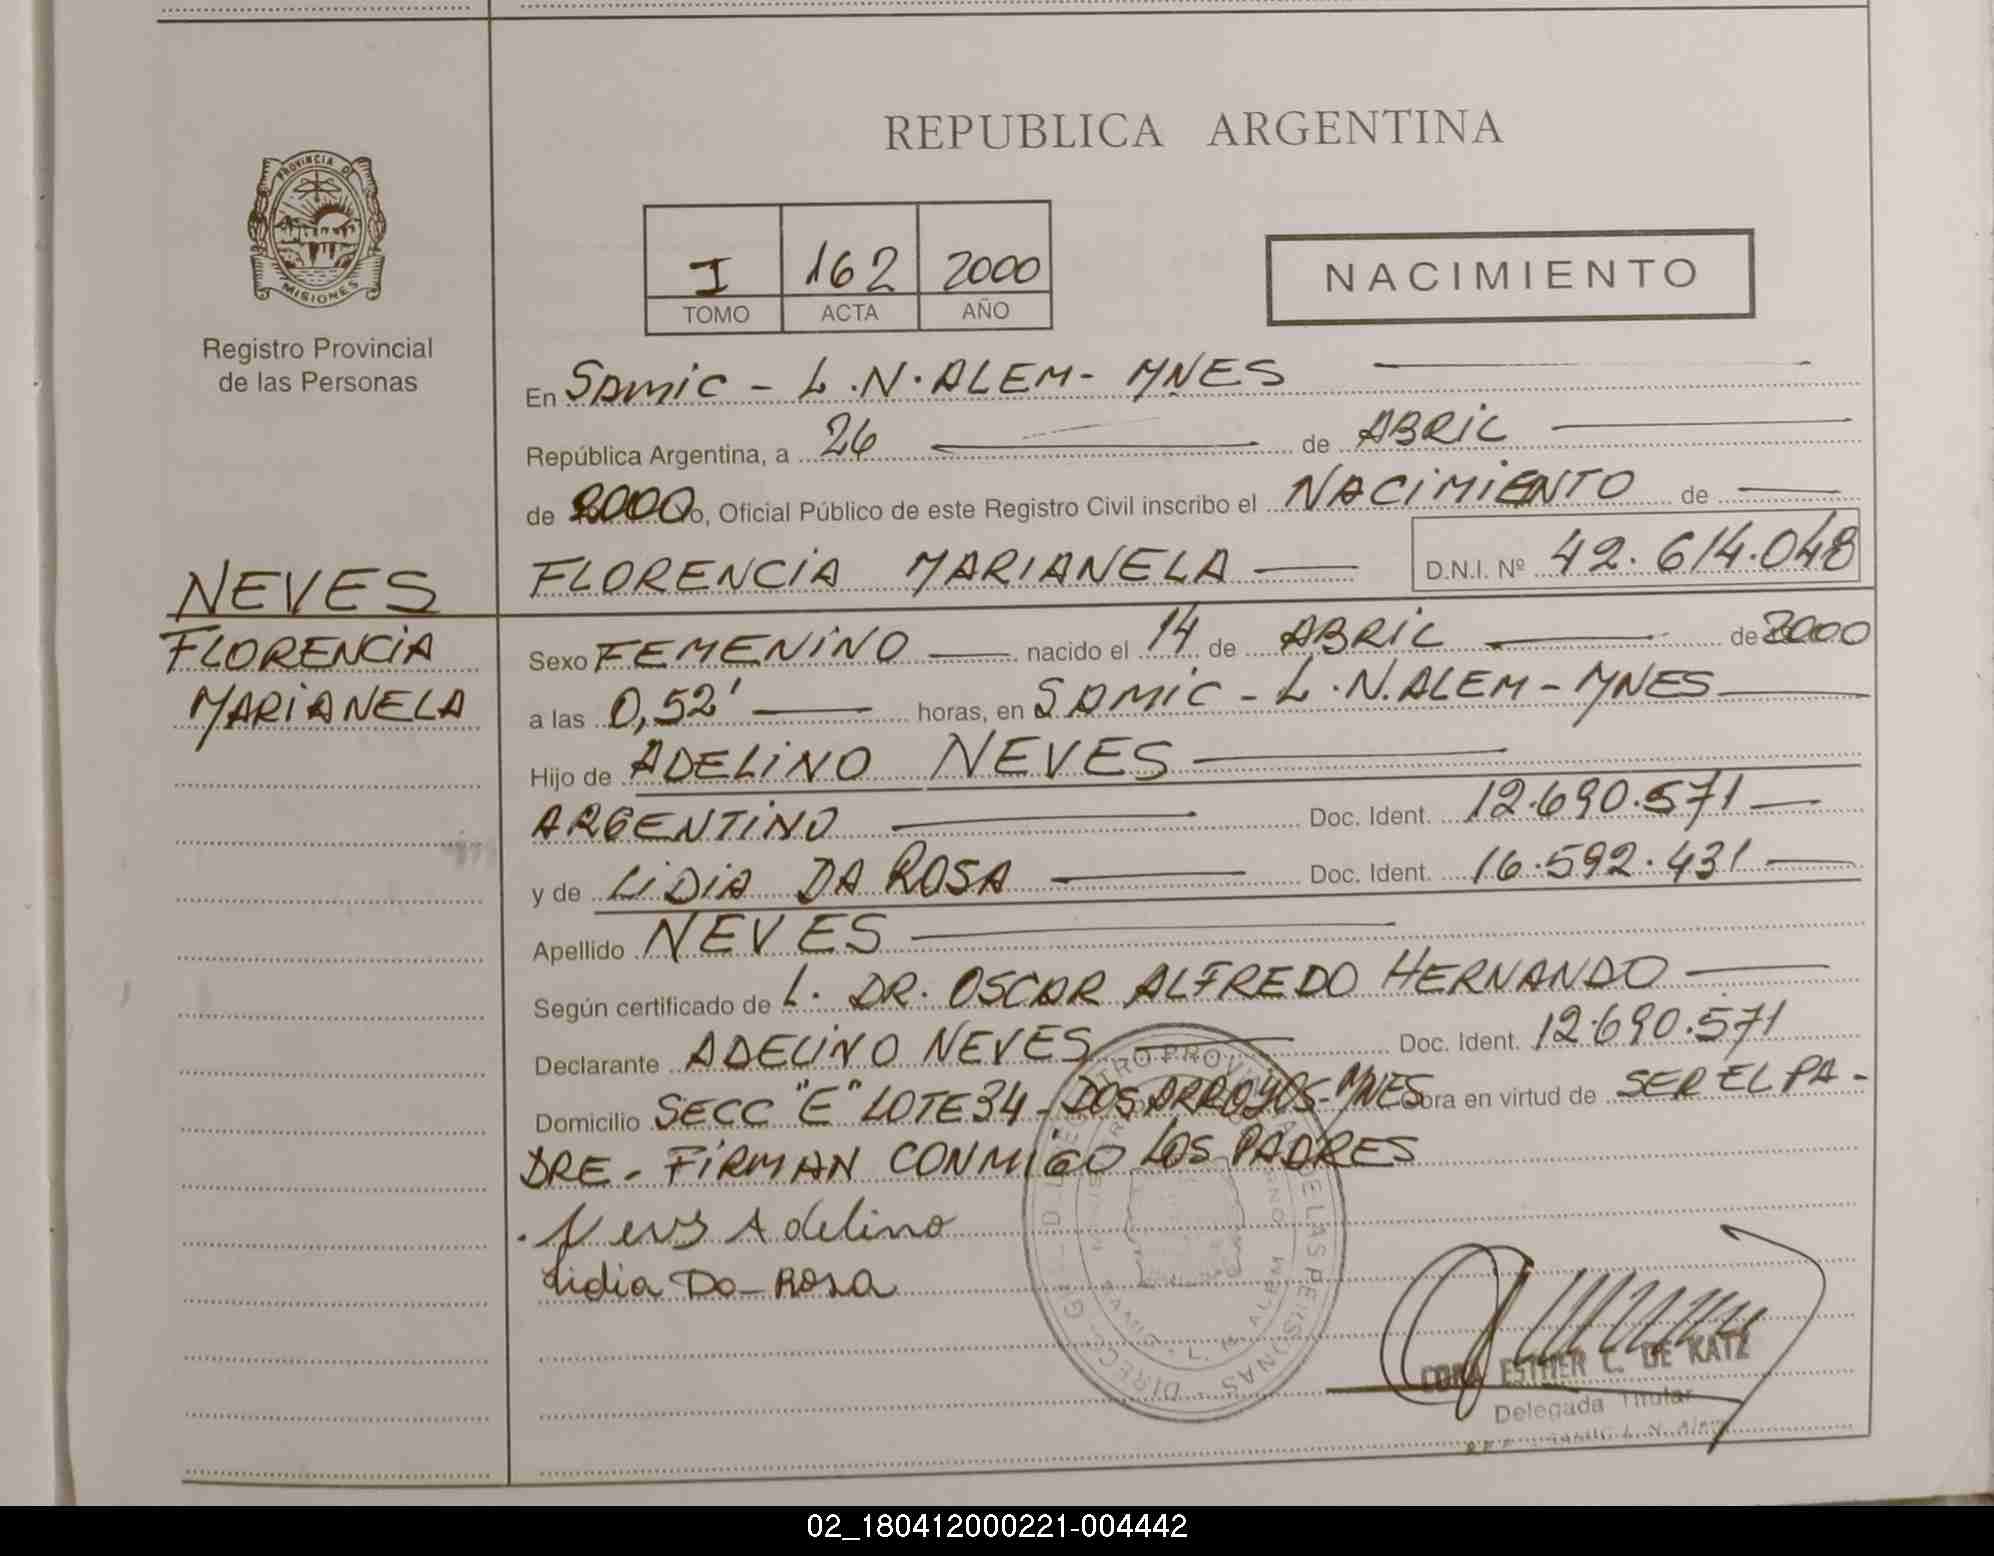 REPUBLICA ARGENTINA
PROVINCIA DE
MISIONES
Registro Provincial
de las Personas
I 162 2000
TOMO ACTA AÑO
NACIMIENTO
En SAMIC - L.N. ALEM - MNES
República Argentina, a 26 de ABRIL
de 2000, Oficial Público de este Registro Civil inscribo el NACIMIENTO de
FLORENCIA MARIANELA D.N.I. Nº 42.614.048
NEVES
FLORENCIA
MARIANELA
Sexo FEMENINO nacido el 14 de ABRIL de 2000
a las 0,52' horas, en SAMIC - L.N. ALEM - MNES
Hijo de ADELINO NEVES
ARGENTINO Doc. Ident. 12.690.571
y de LIDIA DA ROSA Doc. Ident. 16.592.431
Apellido NEVES
Según certificado de L. DR. OSCAR ALFREDO HERNANDO
Declarante ADELINO NEVES Doc. Ident. 12.690.571
Domicilio SECC "E" LOTE 34 - DOS ARROYOS - MNES obra en virtud de SER EL PA-
DRE - FIRMAN CONMIGO LOS PADRES
Neves Adelino
Lidia Da Rosa
CORA ESTHER C. DE KATZ
Delegada Titular
02_180412000221-004442